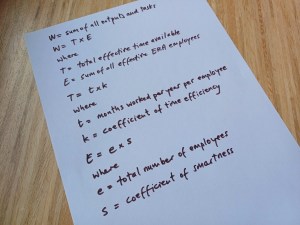 W = sum of all outputs and tasks
W = T x E
where
T = total effective time available
E = sum of all effective ERA employees
T = t x k
where
t = months worked per year per employee
k = coefficient of time efficiency
E = e x s
where
e = total number of employees
s = coefficient of smartness